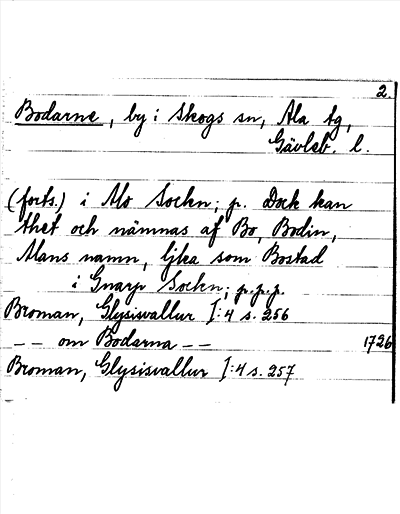 2.
Bodarne, by i Skogs sn, Ala tg,
Gävleb. l.
(forts.) i Alo Sockn; p. Dock kan
thet och nämnas af Bo, Bodin,
Mans namn, lika som Bostad
i Gnarp Sockn; p.p.p.
Broman, Glysisvallur I:4 s. 256
-- om Bodarna -- 1726
Broman, Glysisvallur I:4 s. 257